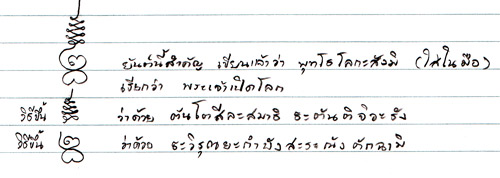 ยันต์นี้สำคัญ เขียนแล้วว่า พุทโธโลกะสังมิ (ใส่ในมือ)
เรียกว่า พระเจ้าเปิดโลก
วิธีขึ้น ว่าด้วย ตันโตสีละสมาธิ ระตันติจิอะรัง
วิธีขึ้น ว่าด้วย ระวิรุณยะกำปังสะระณังคัจฉามิ